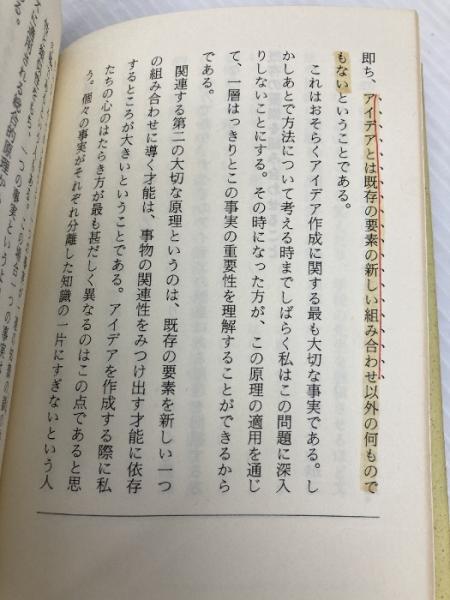 即ち、アイデアとは既存の要素の新しい組み合わせ以外の何もので
もないということである。
これはおそらくアイデア作成に関する最も大切な事実である。し
かしあとで方法について考える時までしばらく私はこの問題に深入
りしないことにする。その時になった方が、この原理の適用を通じ
て、一層はっきりとこの事実の重要性を理解することができるから
である。
関連する第二の大切な原理というのは、既存の要素を新しい一つ
の組み合わせに導く才能は、事物の関連性をみつけ出す才能に依存
するところが大きいということである。アイデアを作成する際に私
たちの心のはたらき方が最も甚だしく異なるのはこの点であると思
う。個々の事実がそれぞれ分離した知識の一片にすぎないという人